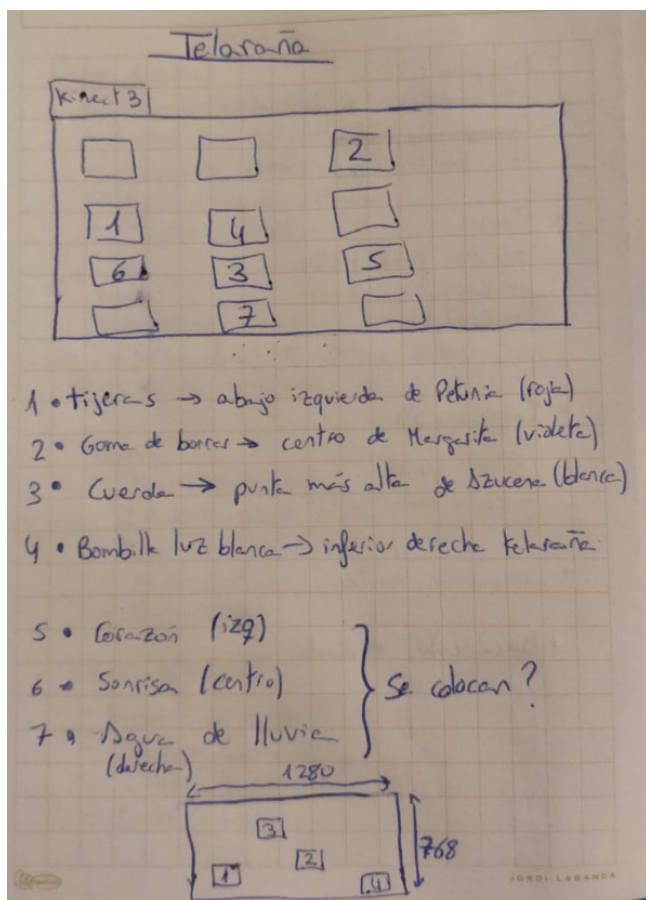 Telaraña
Kinect 3
2
1 4
6 3 5
7
1 • tijeras → abajo izquierda de Petunia (roja)
2 • Goma de borrar → centro de Margarita (violeta)
3 • Cuerda → punta más alta de Azucena (blanca)
4 • Bombilla luz blanca → inferior derecha telaraña
5 • Corazón (izq)
6 • Sonrisa (centro)
Se colocan?
7 • Agua de lluvia
(derecha)
1280
3
768
2
1
4
JORDI LABANDA